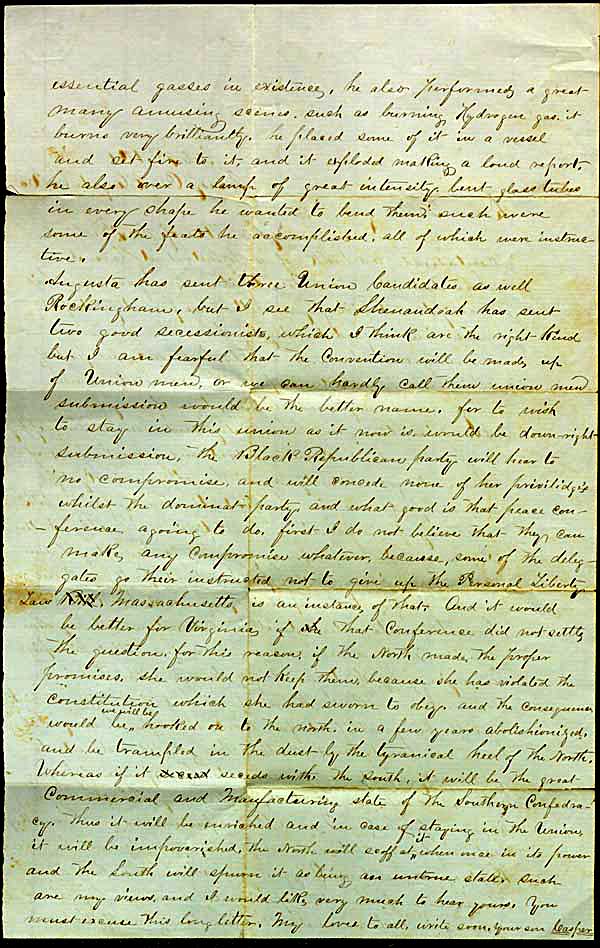 essential gasses in existence, he also performed a great
many amusing scenes, such as burning Hydrogen gas. it
burns very brilliantly. he placed some of it in a vessel
and set fire to it and it exploded making a loud report.
he also over a lamp of great intensity bent glass tubes
in every shape he wanted to bend them, such were
some of the feats he accomplished, all of which were instruc-
tive.
Augusta has sent three Union Candidates as well
Rockingham, but I see that Shenandoah has sent
two good secessionists, which I think are the right kind
but I am fearful that the Convention will be made up
of Union men, or we can hardly call them union men
submission would be the better name. for to wish
to stay in this union as it now is, would be down-right
submission, the Black Republican party will hear to
no compromise, and will concede none of her privilidgis
whilst the dominat party. and what good is that peace con-
-ference, agoing to do, first I do not believe that they can
make any compromise whatever, becausse, some of the dele-
gates go their instructed not to give up the Personal Liberty
Law Massachusetts is an instance of that. And it would
be better for Virginia if that Conference did not settle
the question, for this reason, if the North made the proper
promises, she would not keep them, because she has violated the
Constitution which she had sworn to obey. and the consequence
would be, we will be hooked on to the north, in a few years abolishionized,
and be trampled in the dust by the tyranical heel of the North.
Whereas if it secede with the South, it will be the great
Commercial and Manufacturing state of the Southern Confedra-
cy. thus it will be enriched and in case of staying in the Union,
it will be impoverished, the North will scoff at it, when once in its power
and the South will spurn it as being an untrue state. such
are my views, and it would like very much to hear yours. You
must excuse this long letter. My love to all, write soon, your son Casper